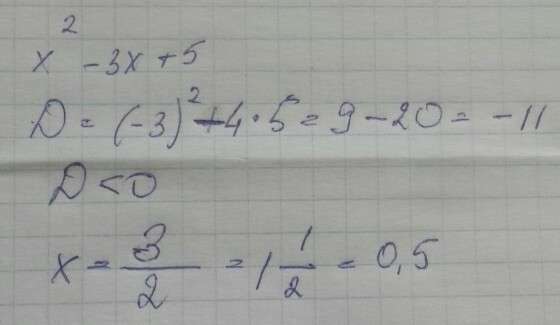 x² - 3x + 5
D = (-3)² - 4 · 5 = 9 - 20 = -11
D < 0
x = 3/2 = 1 1/2 = 0,5